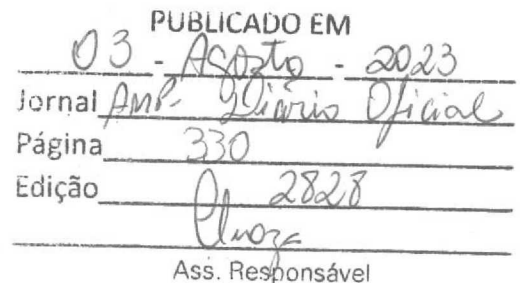 PUBLICADO EM
03 - Agosto - 2023
Jornal AMP- Diário Oficial
Página 330
Edição 2828
Ass. Responsável